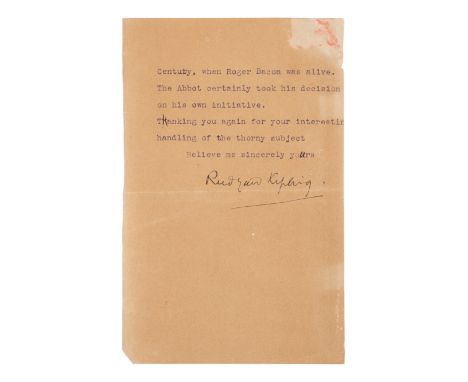 Century, when Roger Bacon was alive.
The Abbot certainly took his decision
on his own initiative.
Thanking you again for your interestin
handling of the thorny subject
Believe me sincerely yours
Rudyard Kipling.